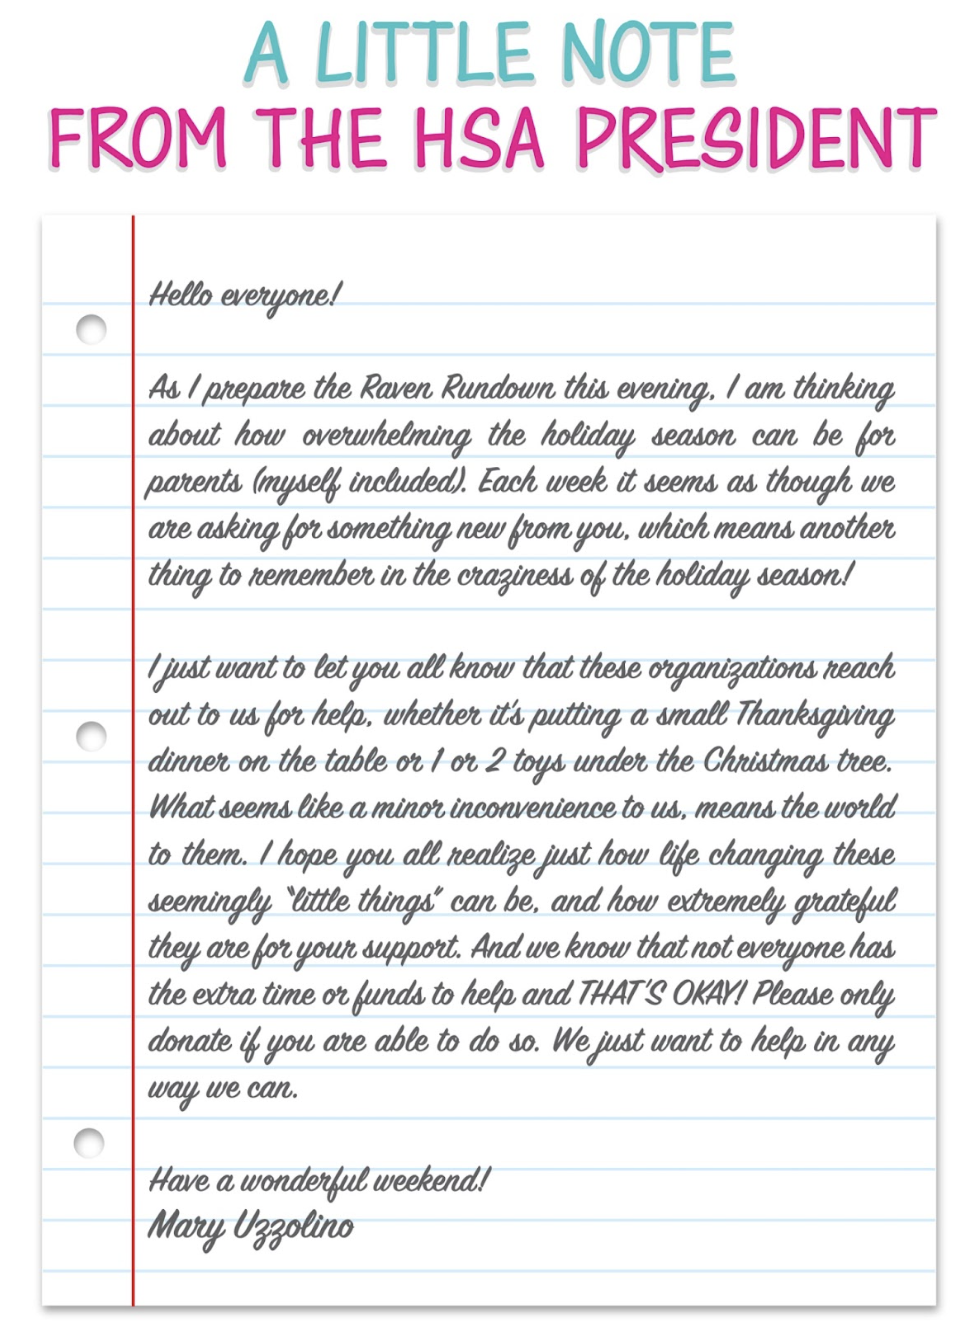 A LITTLE NOTE
FROM THE HSA PRESIDENT
Hello everyone!
As I prepare the Raven Rundown this evening, I am thinking
about how overwhelming the holiday season can be for
parents (myself included). Each week it seems as though we
are asking for something new from you, which means another
thing to remember in the craziness of the holiday season!
I just want to let you all know that these organizations reach
out to us for help, whether it's putting a small Thanksgiving
dinner on the table or 1 or 2 toys under the Christmas tree.
What seems like a minor inconvenience to us, means the world
to them. I hope you all realize just how life changing these
seemingly "little things" can be, and how extremely grateful
they are for your support. And we know that not everyone has
the extra time or funds to help and THAT'S OKAY! Please only
donate if you are able to do so. We just want to help in any
way we can.
Have a wonderful weekend!
Mary Uzzolino